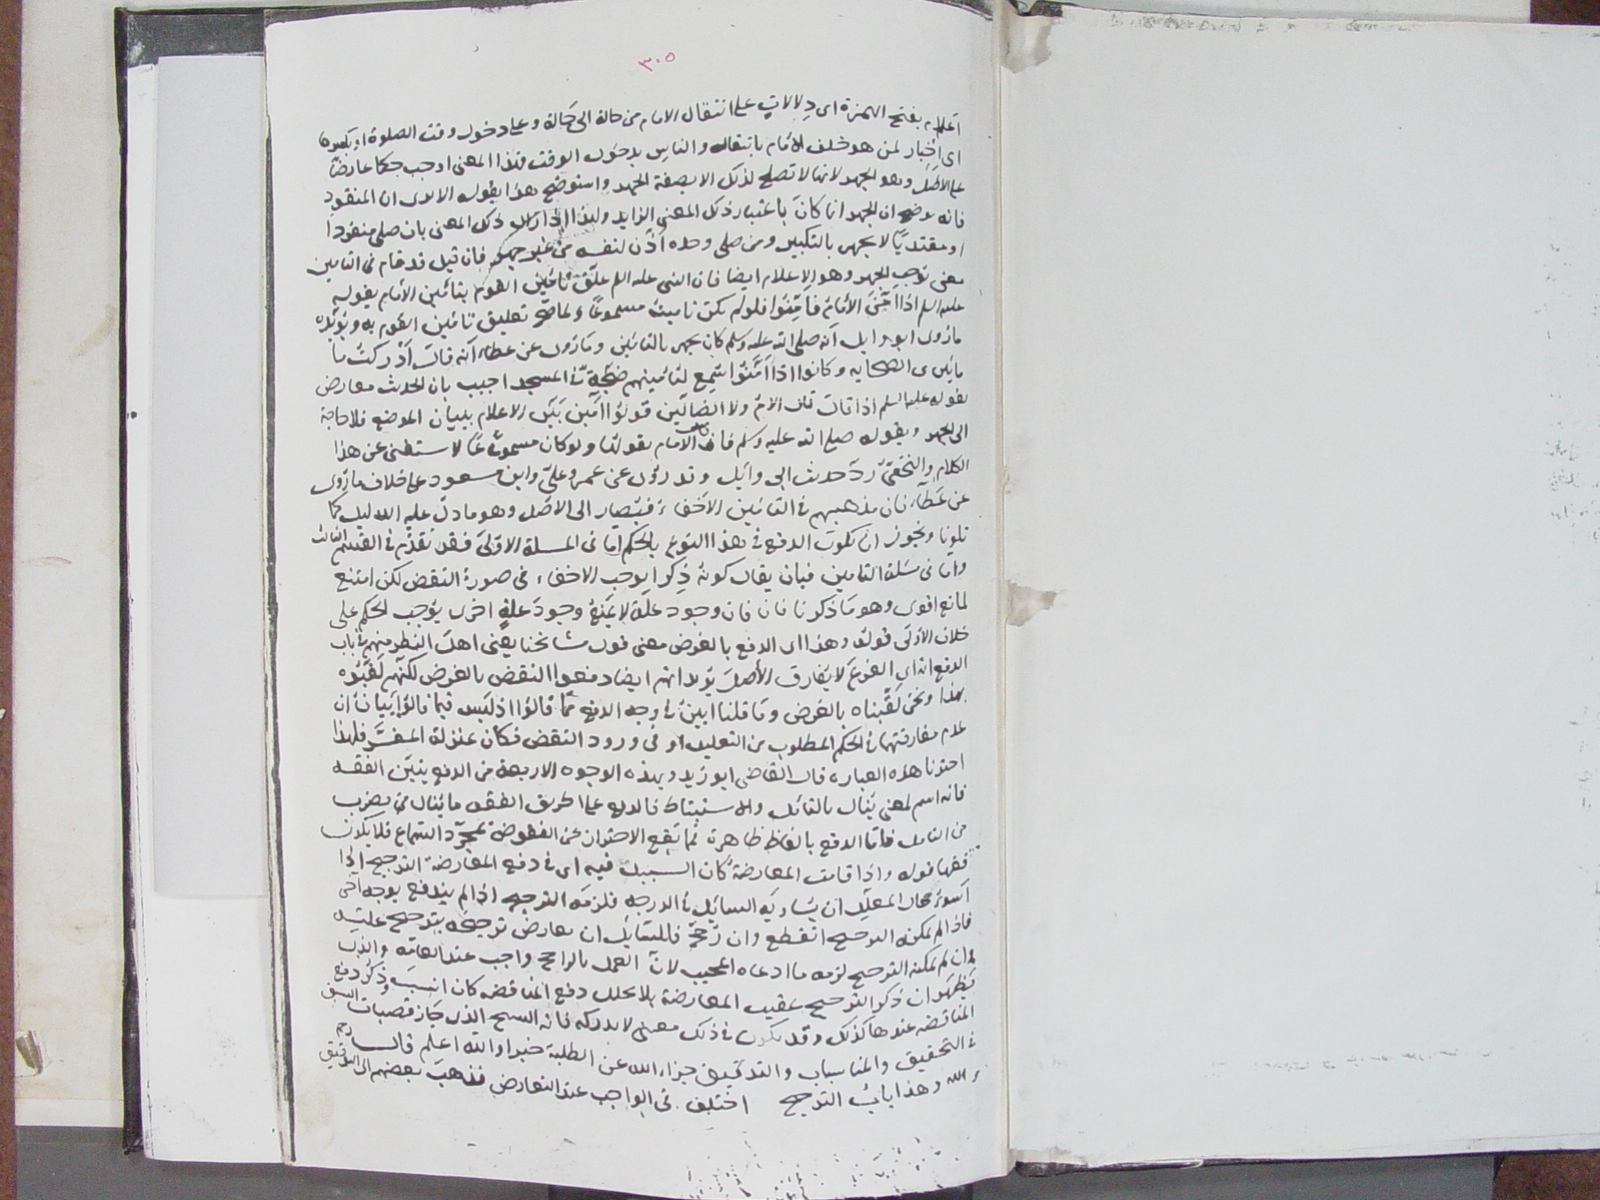 ٣٠٥
اعلام بفتح الهمزة اى دلالات على انتقال الامام من حالة الى حالة وعلى دخول وقت الصلوة او بكسرها
اى اخبار لمن هو خلف الامام بانتقاله والناس بدخول الوقت فهذا المعنى اوجب حكما عارضا
على الاصل وهو الجهر لانها لا تصلح لذلك الا بصفة الجهر واستوضح هذا بقوله الا يرى ان المنفرد
فانه يوضح ان الجهر انما كان باعتبار ذلك المعنى الزايد ولهذا اذا زال ذلك المعنى بان صلى منفردا
او مقتديا لا يجهر بالتكبير ومن صلى وحده اذن لنفسه من غير جهر فان قيل قد قام فى التامين
معنى يوجب الجهر وهو الاعلام ايضا فان النبى عليه السلم علق تامين القوم بتامين الامام بقوله
عليه السلم اذا امن الامام فامنوا فلو لم يكن تامينه مسموعا لما صح تعليق تامين القوم به ويؤيده
ما روى ابو وايل انه صلى الله عليه وسلم كان يجهر بالتامين وما روى عن عطاء انه قال ادركت ما
مايتين الصحابه وكانوا اذا امنوا سمع لتامينهم ضجة فى المسجد اجيب بان الحديث معارض
بقوله عليه السلم اذا قال الامام ولا الضالين قولوا امين بين الاعلام ببيان الموضع فلا حاجة
الى الجهر وبقوله صلى الله عليه وسلم فان الامام يقولها ولو كان مسموعا لاستغنى عن هذا
الكلام والنخعى رد حديث ابى وايل وقد روى عن عمر وعلى وابن مسعود على خلاف ما روى
عن عطاء فان مذهبهم فى التامين الاخفاء فيصار الى الاصل وهو ما دل عليه الدليل كما
تلونا ويجوز ان يكون الدفع فى هذا النوع بالحكم اما فى المسلة الاولى فقد تقدم فى القسم الثالث
واما فى مسلة التامين فبان يقال كونه ذكرا يوجب الاخفاء فى صورة النقض لكن امتنع
لمانع اقوى وهو ما ذكرنا فان وجود علة لا يمنع وجود علة اخرى يوجب الحكم على
خلاف الاولى قوله وهذا اى الدفع بالغرض معنى قول مشائخنا يعنى اهل النظر منهم فى باب
الدفع انه اى الفرع لا يفارق الاصل يريد انهم ايضا دفعوا النقض بالغرض لكنهم لقبوه
بهذا ونحن لقبناه بالغرض وما قلنا ابين فى وجه الدفع مما قالوا اذ ليس فيما قالوا بيان ان
عدم مفارقتهما فى الحكم المطلوب من التعليل او فى ورود النقض فكان بمنزلة المفسر فلهذا
اخترنا هذه العبارة قال القاضى ابو زيد وبهذه الوجوه الاربعة من الدفع يتبين الفقه
فانه اسم لمعنى ينال بالتامل والاستنباط فالدفع على طريق الفقه ما ينال من بضرب
من التامل فاما الدفع بالفاظ ظاهرة فما يقع الاحتراز عن النقوض بمجرد السماع فلا يكون
فقها قوله واذا قامت المعارضة كان السبيل فيه اى فى دفع المعارضة الترجيح اذا
اسوء حال المعلل ان يساويه السايل فى الدرجه فلزمه الترجيح اذا لم يندفع بوجه اخر
فاذا لم يمكنه الترجيح انقطع وان رجح فللسايل ان يعارض ترجيحه بترجيح علته
وان لم يمكنه الترجيح لزمه ما ادعاه المجيب لان العمل بالراجح واجب عند العامه والذى
يظهر ان ذكر الترجيح عقيب المعارضة بلا تخلل دفع المناقضه كان انسب وذكر دفع
المناقضه عندها كذلك وقد يكون فى ذلك معنى لا يدركه فانه الشيخ الذى حاز قصبات السبق
فى التحقيق والمناسبات والتدقيق جزاه الله عن الطلبة خيرا والله اعلم قال رحمه
الله وهذا باب الترجيح اختلف فى الواجب عند التعارض فذهب بعضهم الى التوقيق